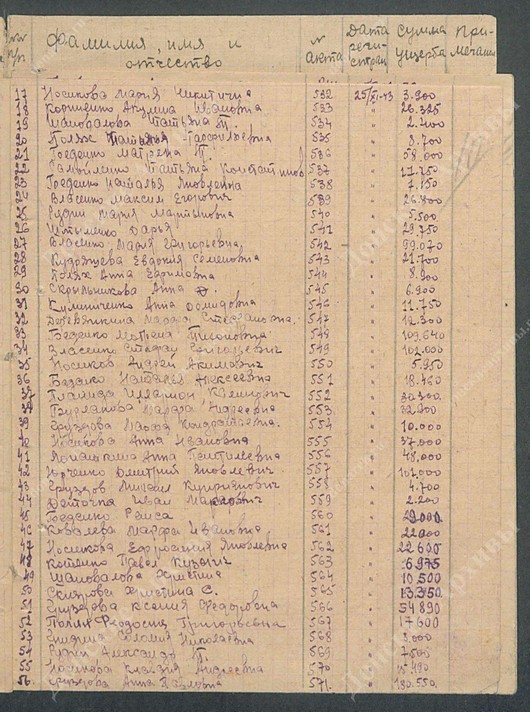 №№ п/п Фамилия, имя и отчество № акта Дата регистрации Сумма ущерба Примечание
17 Носикова Мария Никитична 532 25/XI-43 3.900
18 Корниенко Акулина Ивановна 533 " 26.325
19 Шаповалова Татьяна П. 534 " 2.400
20 Поляж Татьяна 535 " 8.700
21 Гоеденко Матрена П. 536 " 58.000
22 Самойленко Татьяна Константинов 537 " 17.750
Гоеденко Наталья Яковлевна 538 " 7.150
Власенко Максим Егорович 539 " 26.800
25 Мария Мартыновна 540 " 5.500
26 Штыменко Дарья 541 " 29.750
27 Власенко Мария Григорьевна 542 " 99.070
28 Кудрявцева Евдокия Семеновна 543 " 21.700
29 Поляж Анна Ефимовна 544 " 8.900
30 Скрыльникова Анна 545 " 6.900
31 Анна 546 " 11.750
32 Деревянкина Марфа Степановна 547 " 12.300
33 Беденко Матрена Тихоновна 548 " 109.640
34 Власенко Стефан Григорьевич 549 " 102.000
35 Носиков Андрей Акимович 550 " 5.950
36 Наталья Алексеевна 551 " 18.460
37 Илларион 552 " 30.300
38 Бурлакова Марфа Андреевна 553 " 32.900
39 Груздова Марфа Кондратьевна 554 " 10.000
40 Носикова Анна Ивановна 555 " 37.000
41 Анна 556 " 48.000
42 Юрченко Дмитрий Яковлевич 557 " 102.000
43 Груздов Михаил Куприянович 558 " 4.700
44 Деточка Иван Маркович 559 " 2.200
45 Гоеденко Раиса 560 "
46 Ковалева Марфа Ивановна 561 " 22000
47 Носикова Ефросиния Яковлевна 562 " 22600
48 Костенко Павел Кузьмич 563 " 6975
49 Шаповалова 564 " 10500
50 С. 565 " 13350
51 Груздова Ксения Федоровна 566 " 54890
52 Феодосия Григорьевна 567 " 17600
53 Соломия Николаевна 568 " 3.000
54 Александр П. 569 " 7.500
55 Носикова Клавдия Андреевна 570 " 15.490
56 Груздова Анна Павловна 571 " 130.550